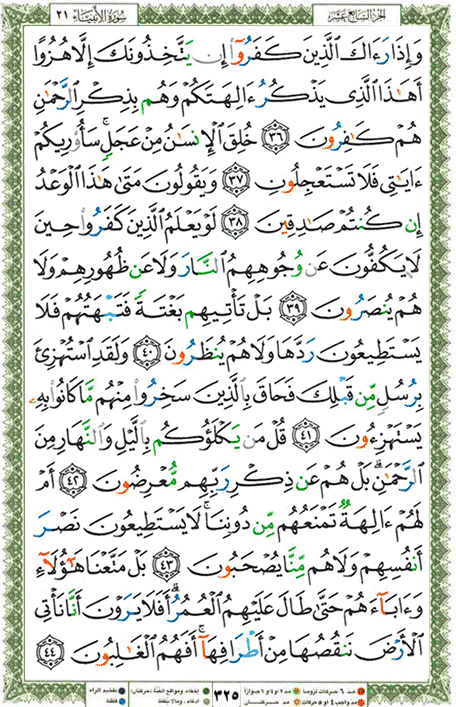 سورة الأنبياء ٢١
الجزء السابع عشر
وَإِذَا رَءَاكَ ٱلَّذِينَ كَفَرُوٓا۟ إِن يَتَّخِذُونَكَ إِلَّا هُزُوًا
أَهَـٰذَا ٱلَّذِى يَذْكُرُ ءَالِهَتَكُمْ وَهُم بِذِكْرِ ٱلرَّحْمَـٰنِ
هُمْ كَـٰفِرُونَ ٣٦ خُلِقَ ٱلْإِنسَـٰنُ مِنْ عَجَلٍ ۚ سَأُو۟رِيكُمْ
ءَايَـٰتِى فَلَا تَسْتَعْجِلُونِ ٣٧ وَيَقُولُونَ مَتَىٰ هَـٰذَا ٱلْوَعْدُ
إِن كُنتُمْ صَـٰدِقِينَ ٣٨ لَوْ يَعْلَمُ ٱلَّذِينَ كَفَرُوا۟ حِينَ
لَا يَكُفُّونَ عَن وُجُوهِهِمُ ٱلنَّارَ وَلَا عَن ظُهُورِهِمْ وَلَا
هُمْ يُنصَرُونَ ٣٩ بَلْ تَأْتِيهِم بَغْتَةً فَتَبْهَتُهُمْ فَلَا
يَسْتَطِيعُونَ رَدَّهَا وَلَا هُمْ يُنظَرُونَ ٤٠ وَلَقَدِ ٱسْتُهْزِئَ
بِرُسُلٍ مِّن قَبْلِكَ فَحَاقَ بِٱلَّذِينَ سَخِرُوا۟ مِنْهُم مَّا كَانُوا۟ بِهِۦ
يَسْتَهْزِءُونَ ٤١ قُلْ مَن يَكْلَؤُكُم بِٱلَّيْلِ وَٱلنَّهَارِ مِنَ
ٱلرَّحْمَـٰنِ ۗ بَلْ هُمْ عَن ذِكْرِ رَبِّهِم مُّعْرِضُونَ ٤٢ أَمْ
لَهُمْ ءَالِهَةٌ تَمْنَعُهُم مِّن دُونِنَا ۚ لَا يَسْتَطِيعُونَ نَصْرَ
أَنفُسِهِمْ وَلَا هُم مِّنَّا يُصْحَبُونَ ٤٣ بَلْ مَتَّعْنَا هَـٰٓؤُلَآءِ
وَءَابَآءَهُمْ حَتَّىٰ طَالَ عَلَيْهِمُ ٱلْعُمُرُ ۗ أَفَلَا يَرَوْنَ أَنَّا نَأْتِى
ٱلْأَرْضَ نَنقُصُهَا مِنْ أَطْرَافِهَآ ۚ أَفَهُمُ ٱلْغَـٰلِبُونَ ٤٤
مد ٦ حركات لزوماً مد ٢ أو ٤ أو ٦ جوازاً
مد واجب ٤ أو ٥ حركات مد حركتان
٣٢٥
إخفاء، ومواقع الغنة (حركتان) تفخيم الراء
إدغام، وما لا يلفظ قلقلة